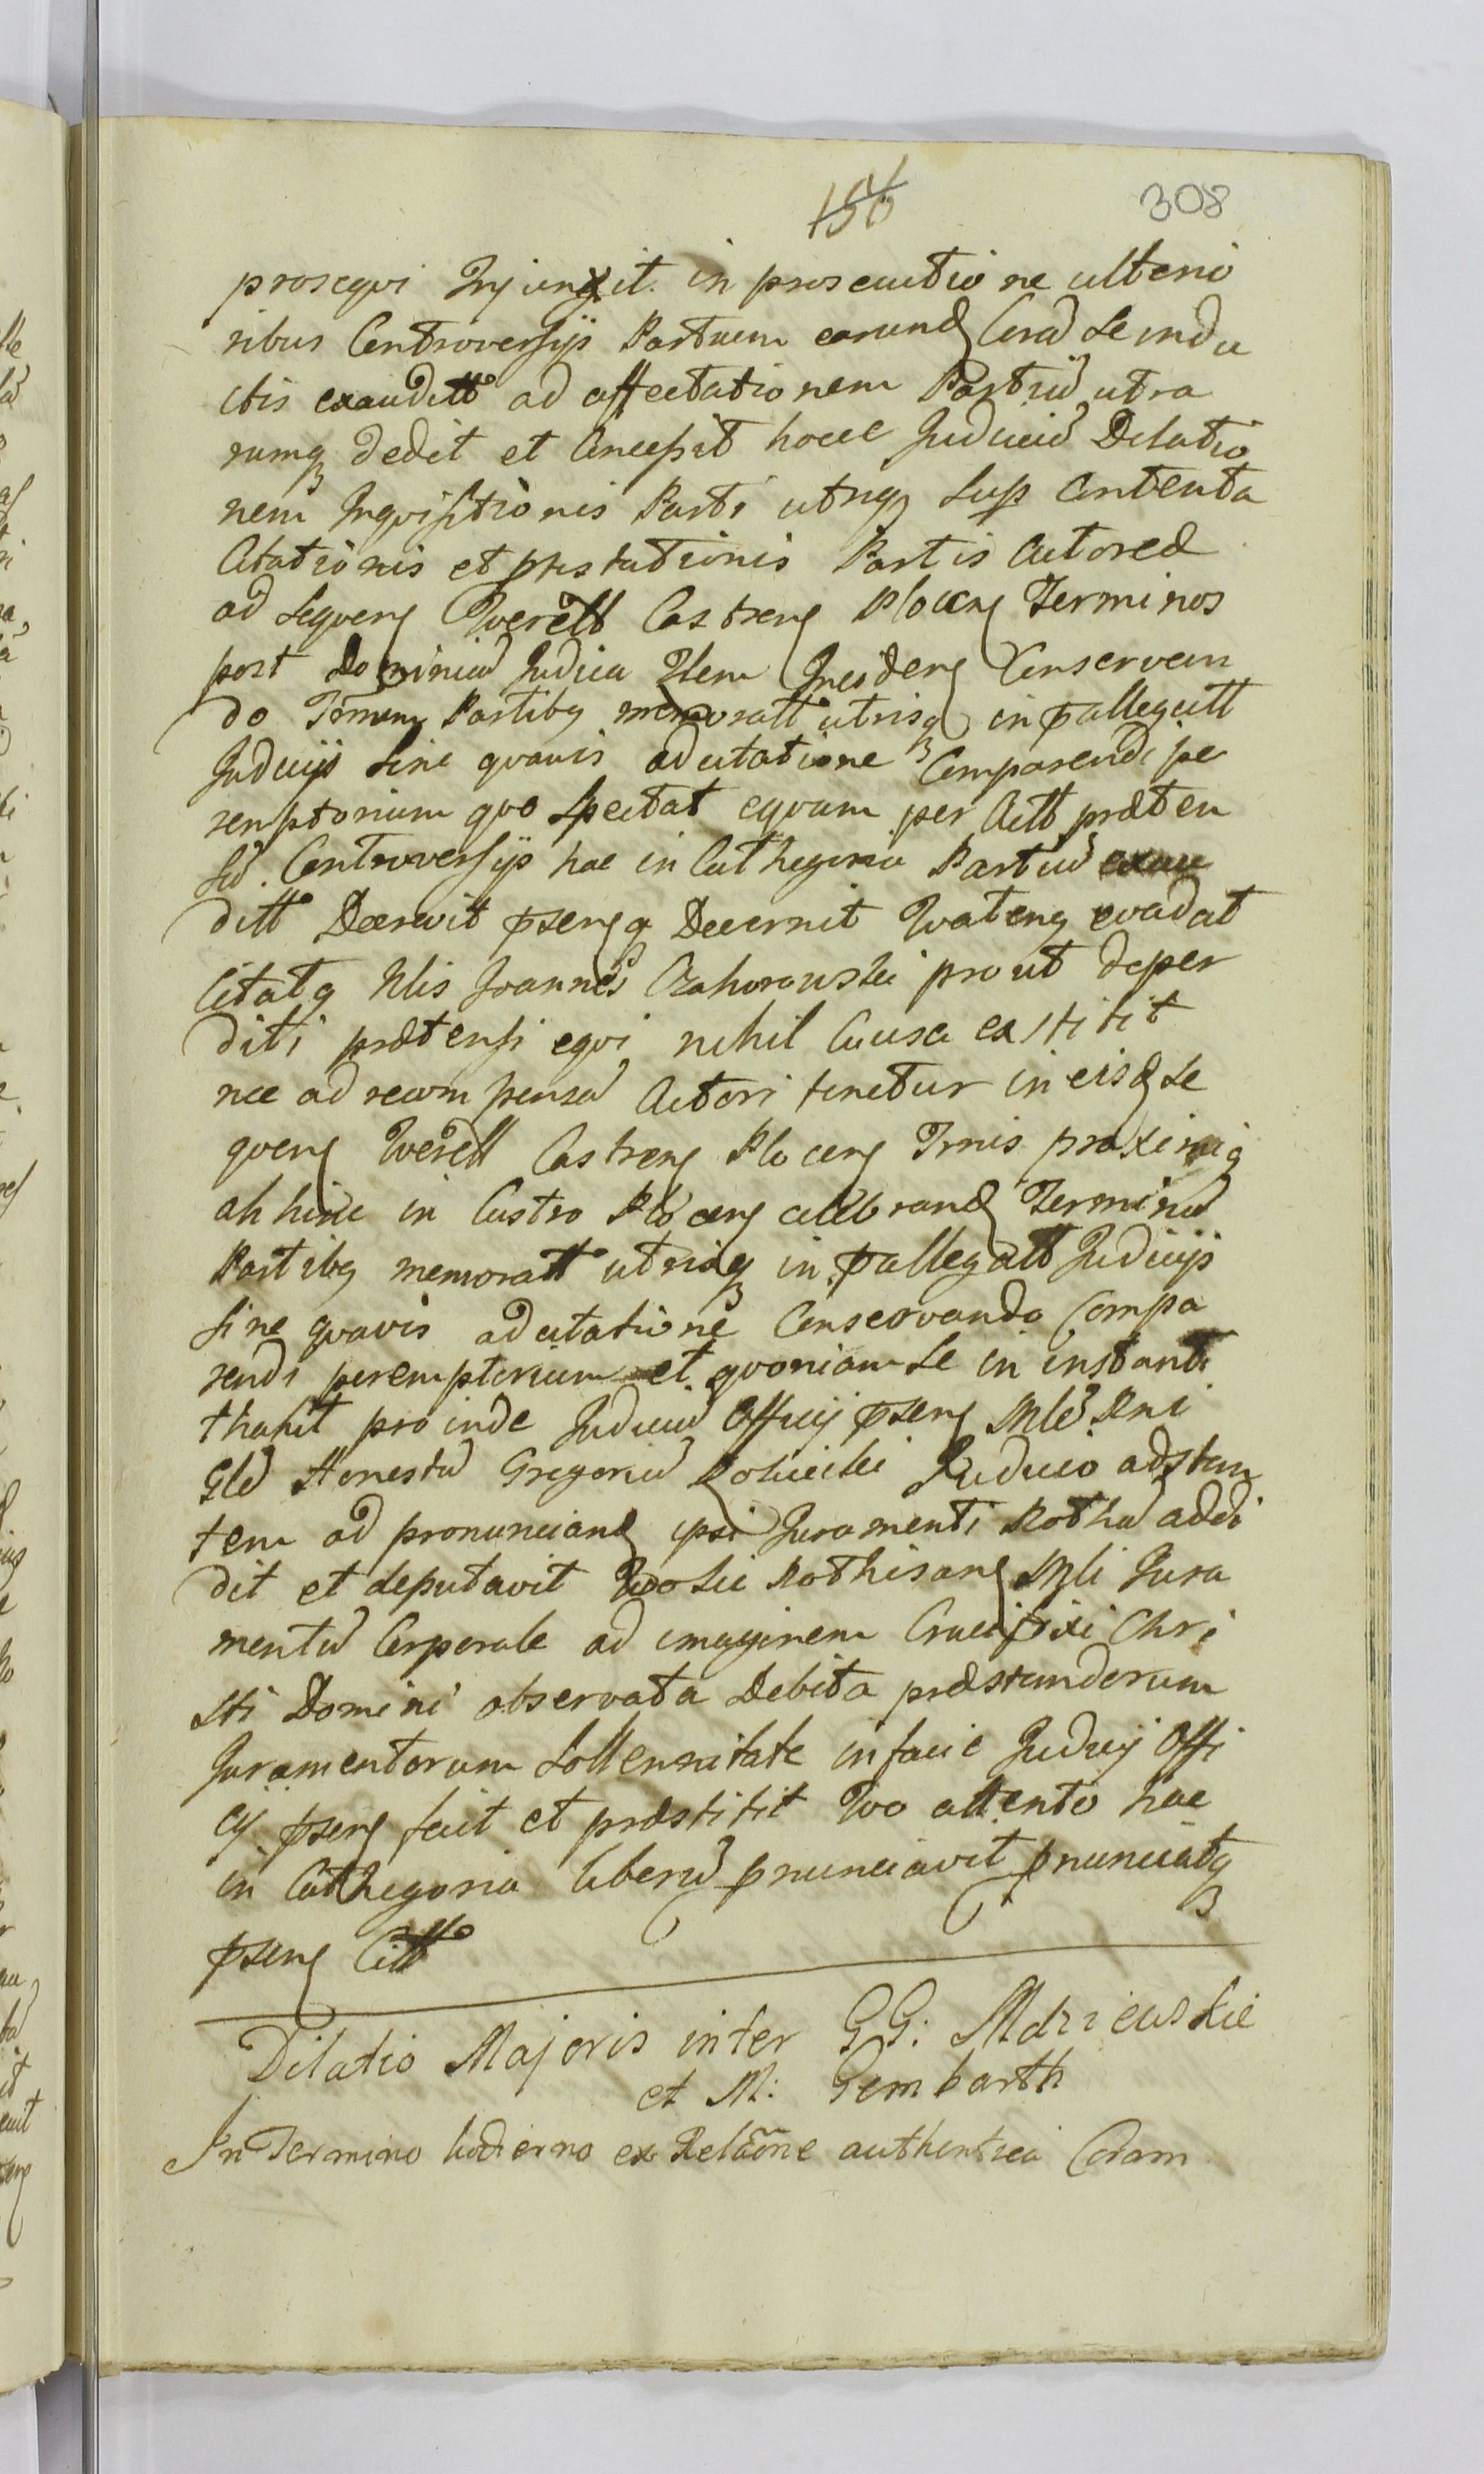 156 308
prosequi Injunxit. in prosecutione ulterio
ribus Controversijs Partium earund Corad Se indu
ctis exauditt ad affectationem Partiu utra
rumq dedit et Concessit hocce Judiciu Dilatio
nem Inquisitionis Parti utriq Sup Contenta
Citationis et ptestationis Partis Actorea
ad Sequen Querell Castren Plocen Terminos
post Dominica Judica Item Inciden Conservan
do Tamen Partibq memoratt utrisq in pallegatt
Judicijs Sine quavis adcitatione Comparendi pe
remptorium quo Spectat equum per Actt præten
su. Controversijs hac in Cathegoria Partiu exau
ditt Decrevit psenq Decernit Quaten evadat
Citatq Nlis Joannes Czahorowski prout deper
diti prætensi equi nihil Causa extitit
nec ad recompensa Actori tenetur in eisd Se
quen Querell Castren Plocen Trnis proxime
abhinc in Castro Plocen celebrand Terminu
Partibq memoratt utrisq in pallegatt Judicijs
Sine quavis adcitatione Conservando Compa
rendi peremptorium et quoniam Se in instanti
proinde Judiciu Officij psen
Honestu Gregoriu Judicio adstan
tem ad pronunciand ipsi Juramenti Rotha addi
dit et deputavit Rothisan Jura
mentu Corporale ad imaginem Crucifixi Chri
sti Domini observata Debita præstanderum
Juramentorum Sollennitate in facie Judicij Offi
cij psen fecit et præstitit Quo attento hac
in Cathegoria liberu pnunciavit pnunciatq
psen Citt
Dilatio Majoris inter GG: Mdzewskie
et N: Gembarth
In Termino hodierno ex Relãone authentica Coram